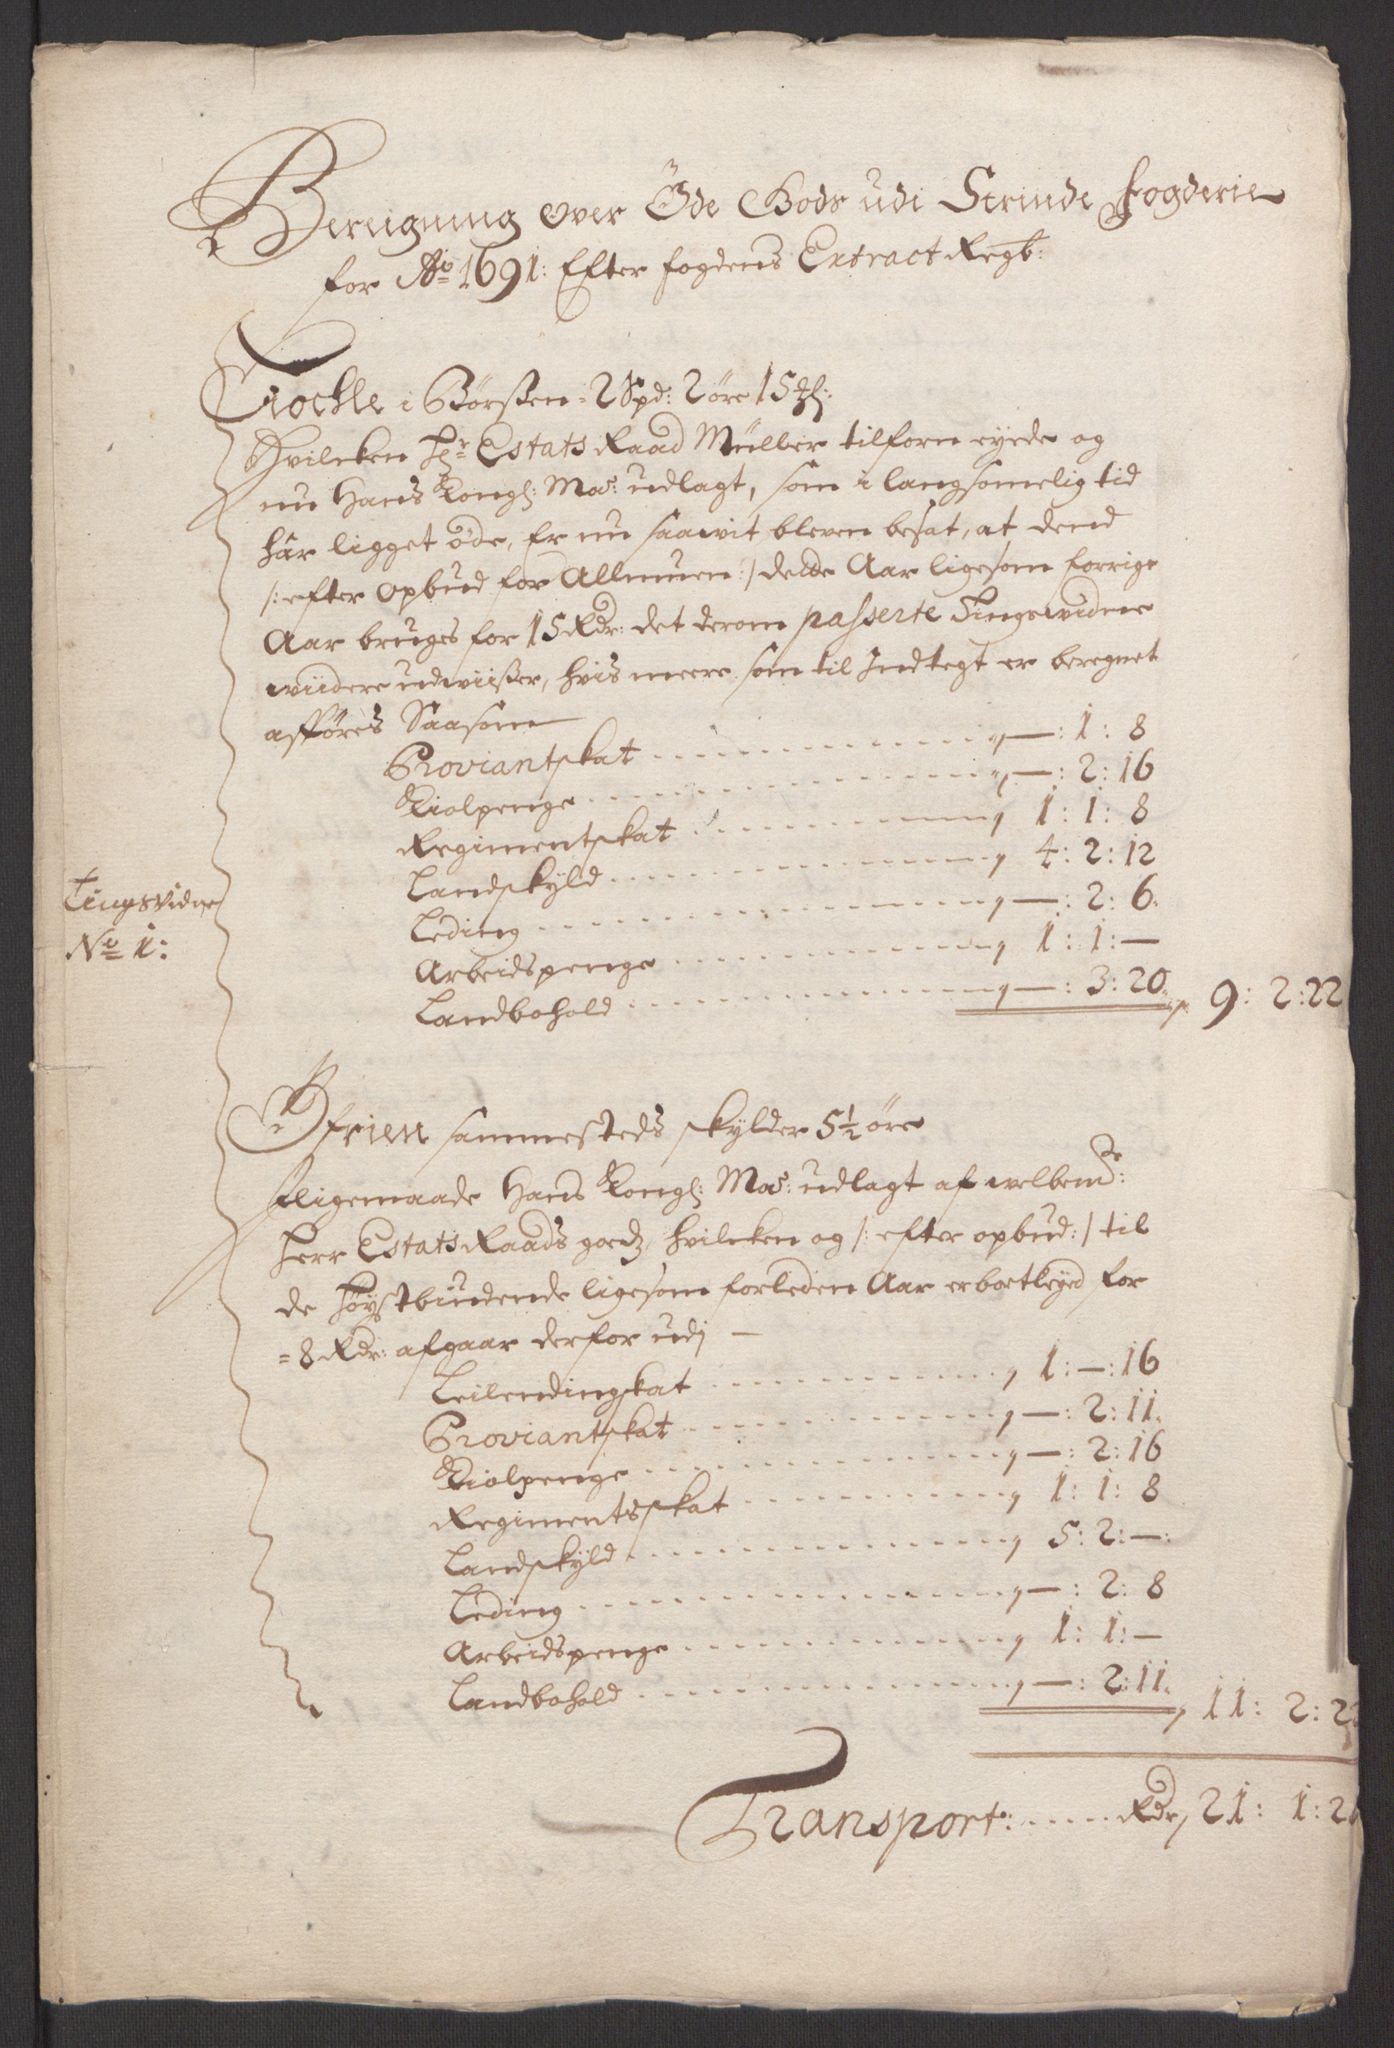 Beregning over Öde Gods udi Strinde Fogderie
for Ao 1691: Efter fogdens Extract Regb:
Trockle i Börßen: 2 Spd: 2 öre 15
Hvilcken Hr Estats Raad Müller tilforn eyede og
nu Hans Kongl: Mas: udlagt, som i langsommelig tid
hâr ligget öde, Er nu saawit bleven besat, at dend
/: efter opbud for Allmuen :/ dette Aar ligesom forrige
Aar bruges for 15 Rdr: det derom passerte Tingswidne
wiidere udwiißer, hvis meere som til Indtegt er beregnet
afföres Saasom
Proviantskat — : 1 : 8
Kiolpenge — : 2 : 16
Regimentskat 1 : 1 : 8
Landskyld 4 : 2 : 12
Leding — : 2 : 6
Arbeidspenge 1 : 1 : —
Landbohold — : 3 : 20
9 : 2 : 22
Tingsvidne
No 1:
Öfrien sammesteds skylder 5½ öre
Iligemaade Hans Kongl: Mas: udlagt af welbemde:
Herr Estats Raads goedz, hvilcken og /: efter opbud :/ til
de höystbiudende ligesom forleden Aar er bortleyed for
8 Rdr: afgaar derfor udj —
Leilendingskat 1 : — : 16
Proviantskat — : 2 : 11
Kiolpenge — : 2 : 16
Regimentsskat 1 : 1 : 8
Landskyld 5 : 2 : —
Leding — : 2 : 8
Arbeidspenge 1 : 1 : —
Landbohold — : 2 : 11
11 : 2 : 22
Transport: Rdr 21 : 1 : 2